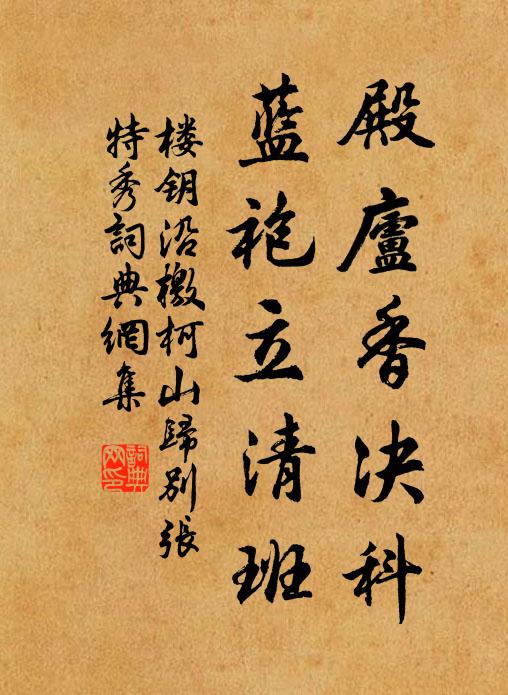 殿廬香決科
藍袍立清班
楼钥沿檄柯山歸别張
特秀詞典網集
詞典網印